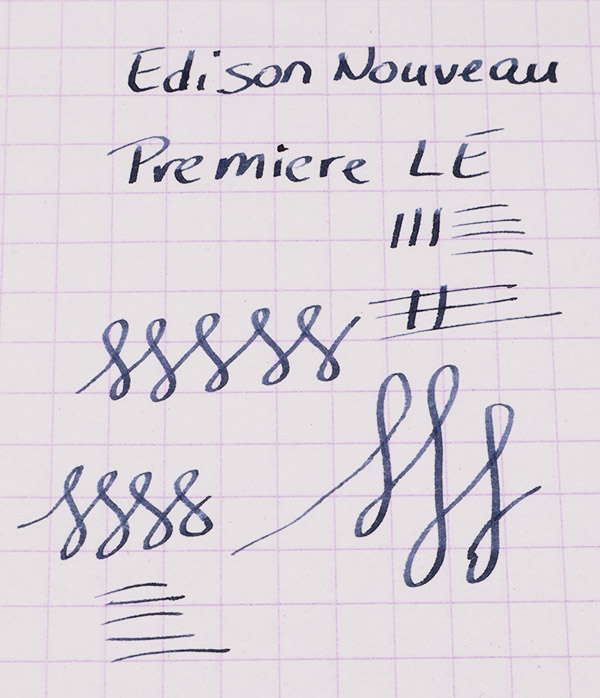 Edison Nouveau
Premiere LE